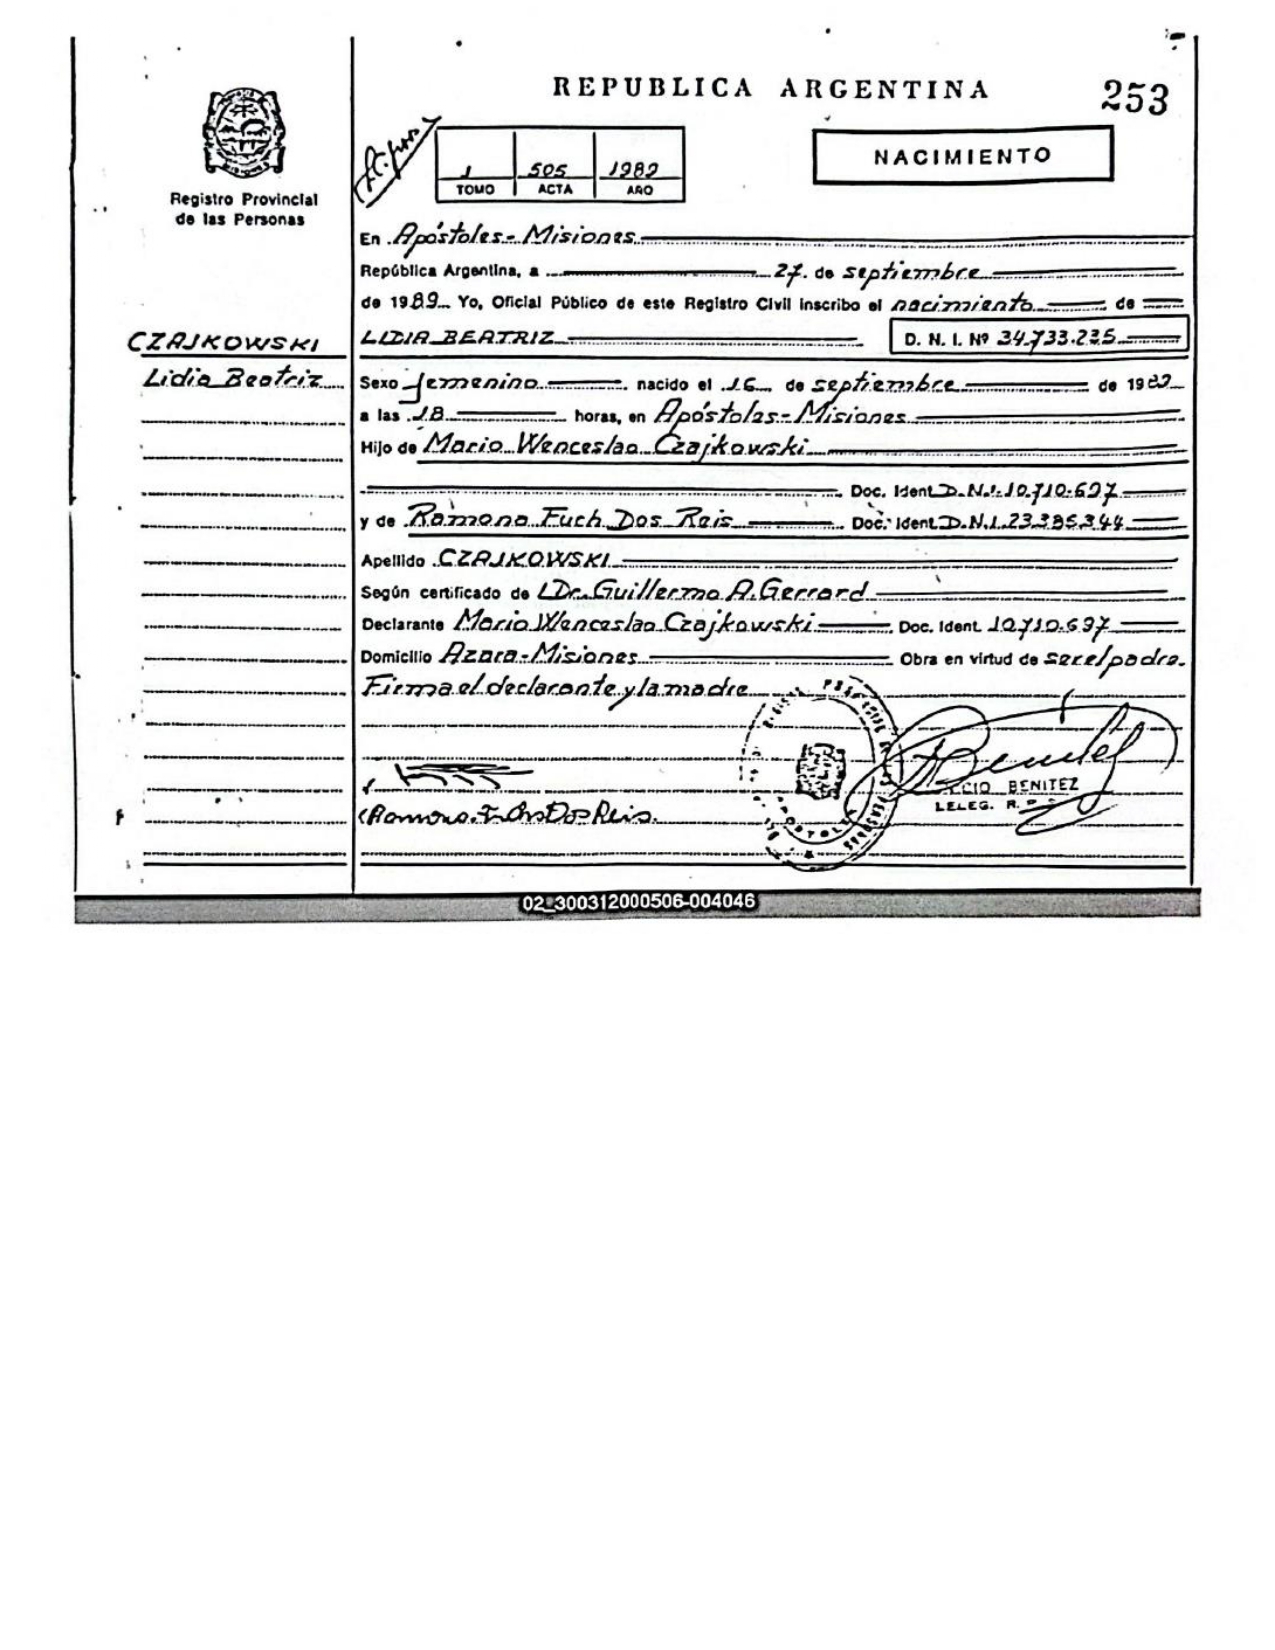 REPUBLICA ARGENTINA
253
NACIMIENTO
1 505 1989
TOMO ACTA AÑO
Registro Provincial
de las Personas
En Apóstoles - Misiones
República Argentina, a 27 de septiembre
de 1989 Yo, Oficial Público de este Registro Civil inscribo el nacimiento de
LIDIA BEATRIZ D. N. I. Nº 34.733.235
CZAJKOWSKI
Lidia Beatriz
Sexo femenino nacido el 16 de septiembre de 1989
a las 18 horas, en Apóstoles - Misiones
Hijo de Mario Wenceslao Czajkowski
Doc. Ident. D.N.I. 10.710.697
y de Ramona Fuch Dos Reis Doc. Ident. D.N.I. 23.385.344
Apellido CZAJKOWSKI
Según certificado de Dr. Guillermo A. Gerrard
Declarante Mario Wenceslao Czajkowski Doc. Ident. 10.710.697
Domicilio Azara - Misiones Obra en virtud de ser el padre.
Firma el declarante y la madre
BENITEZ
Ramona Dos Reis
02_300312000506-004046